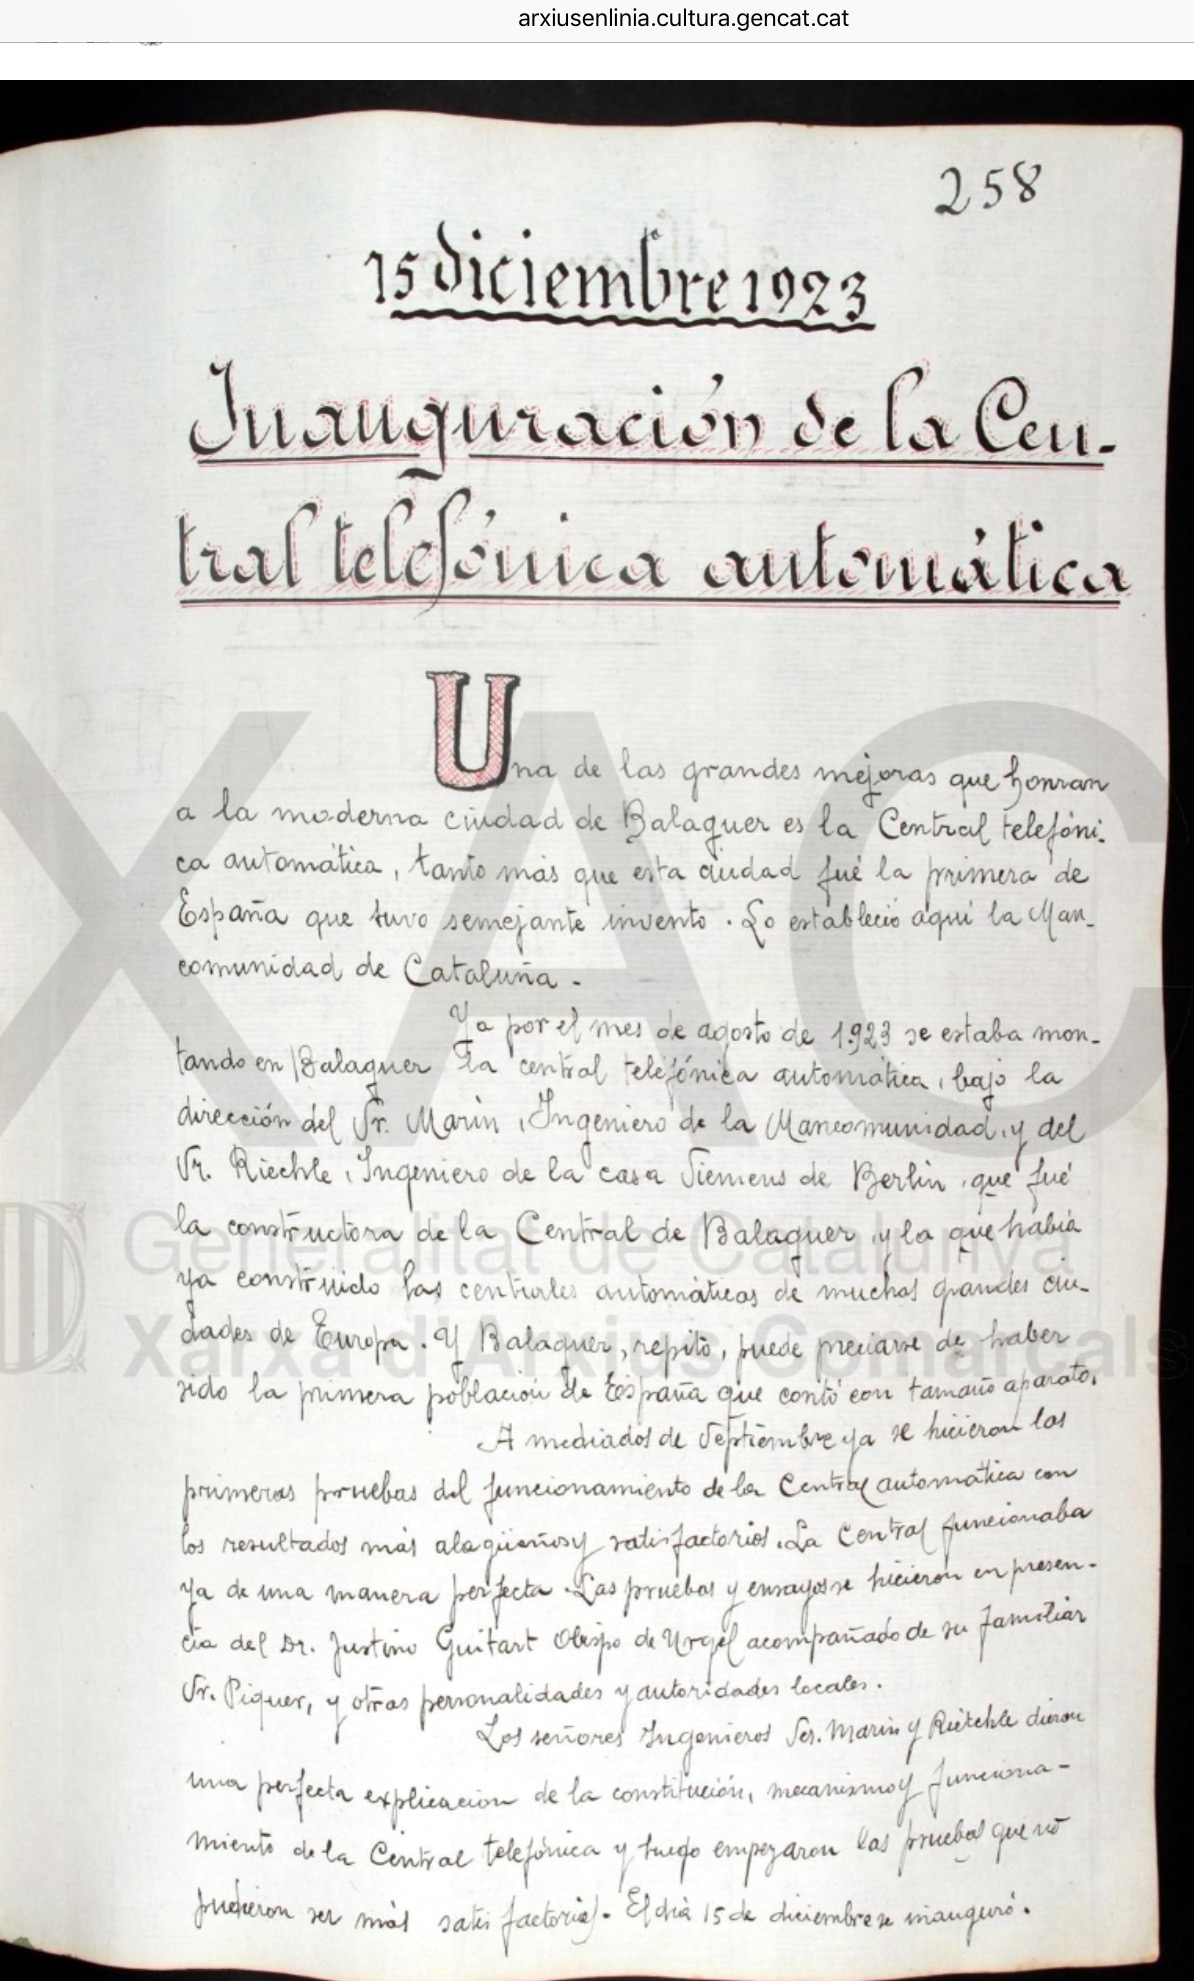 arxiusenlinia.cultura.gencat.cat
258
15 diciembre 1923
Inauguración de la Cen-
tral telefónica automática
Una de las grandes mejoras que honran
a la moderna ciudad de Balaguer es la Central telefóni-
ca automática, tanto más que esta ciudad fué la primera de
España que tuvo semejante invento. Lo estableció aquí la Man-
comunidad de Cataluña.
Ya por el mes de agosto de 1.923 se estaba mon-
tando en Balaguer la central telefónica automática, bajo la
dirección del Sr. Marín, Ingeniero de la Mancomunidad, y del
Sr. Riechle, Ingeniero de la casa Siemens de Berlín, que fué
la constructora de la Central de Balaguer, y la que había
ya construido las centrales automáticas de muchas grandes ciu-
dades de Europa. Y Balaguer, repito, puede preciarse de haber
sido la primera población de España que contó con tamaño aparato.
A mediados de Septiembre ya se hicieron las
primeras pruebas del funcionamiento de la Central automática con
los resultados más alagüeños y satisfactorios. La Central funcionaba
ya de una manera perfecta. Las pruebas y ensayos se hicieron en presen-
cia del Dr. Justino Guitart Obispo de Urgel acompañado de su familiar
Sr. Piquer, y otras personalidades y autoridades locales.
Los señores Ingenieros Srs. Marín y Rietchle dieron
una perfecta explicación de la constitución, mecanismo y funciona-
miento de la Central telefónica y luego empezaron las pruebas que no
pudieron ser más satisfactorias. El día 15 de diciembre se inauguró.
XAC
Generalitat de Catalunya
Xarxa d'Arxius Comarcals